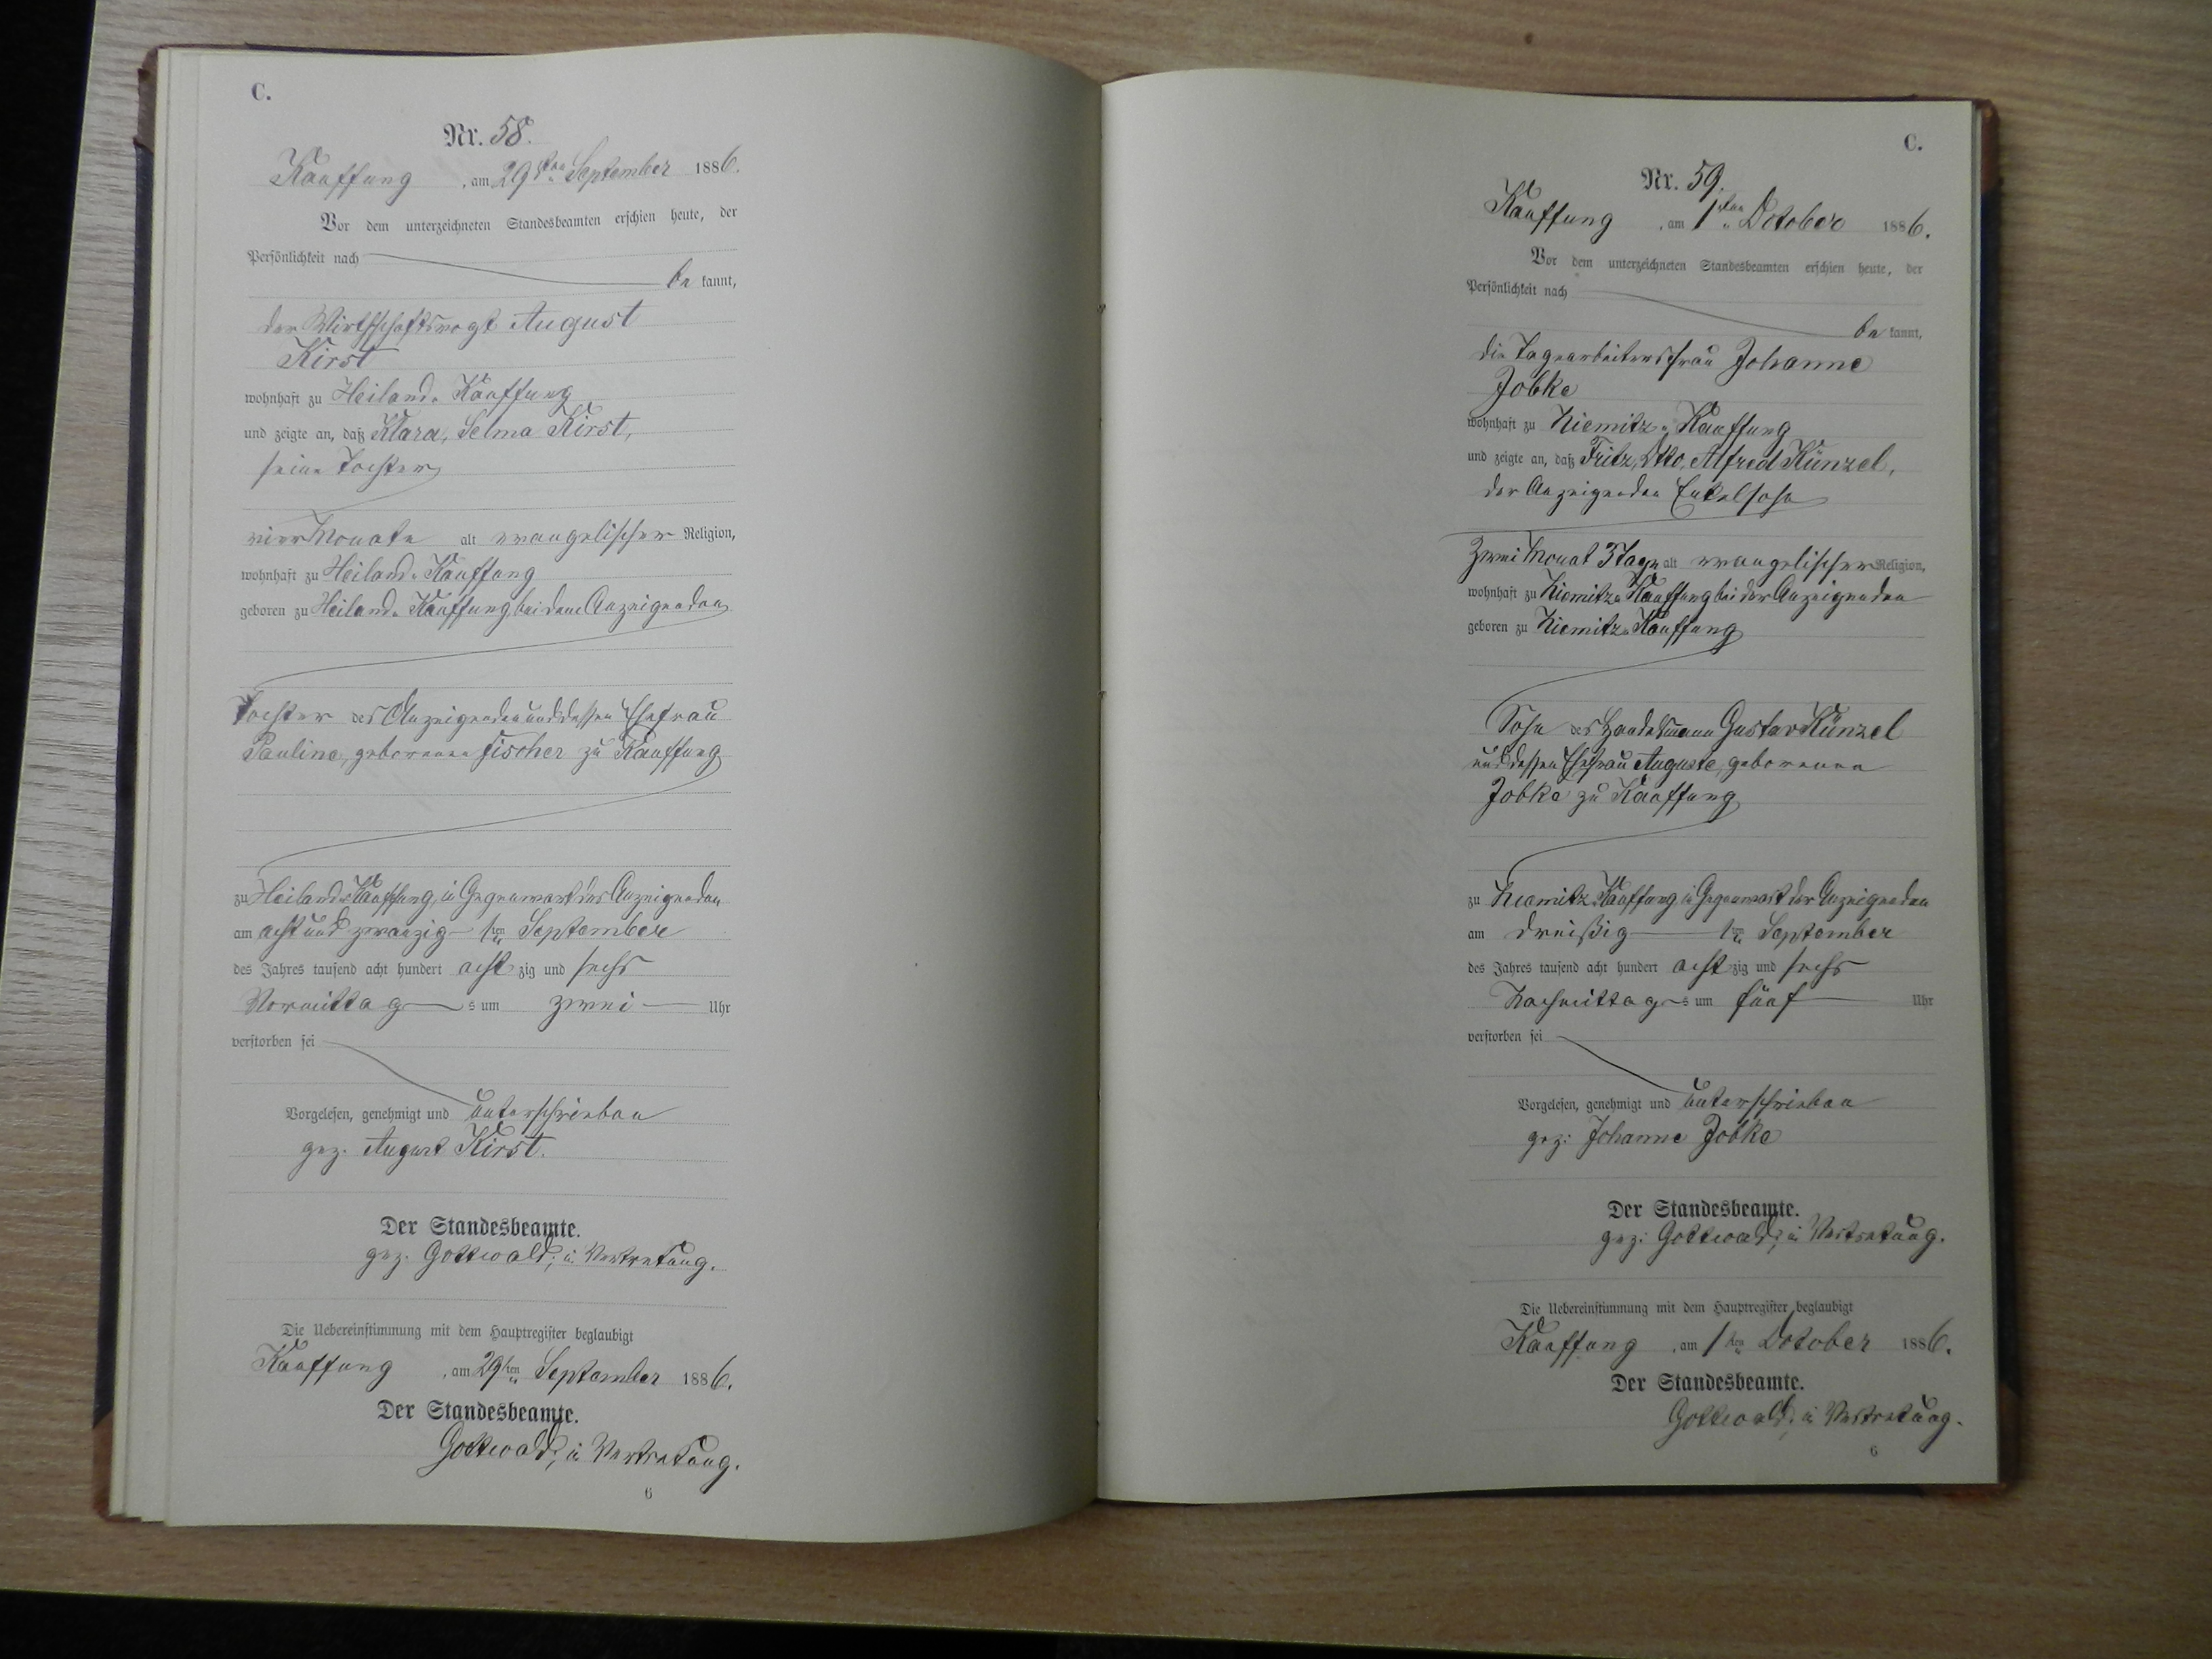 C.
Nr. 58.
Kauffung, am 29ten September 1886.
Vor dem unterzeichneten Standesbeamten erschien heute, der
Persönlichkeit nach
be kannt,
der Wirthschaftsvogt August
Kirst
wohnhaft zu Heiland-Kauffung
und zeigte an, daß Klara, Selma Kirst,
seine Tochter
vier Monate alt evangelischer Religion,
wohnhaft zu Heiland-Kauffung
geboren zu Heiland-Kauffung, bei dem Anzeigenden
Tochter des Anzeigenden und dessen Ehefrau
Pauline, geborenen Fischer zu Kauffung
zu Heiland-Kauffung, in Gegenwart des Anzeigenden
am acht und zwanzig ten September
des Jahres tausend acht hundert acht zig und sechs
Vormittag s um zwei Uhr
verstorben sei
Vorgelesen, genehmigt und unterschrieben
gez. August Kirst.
Der Standesbeamte.
gez. Gottwald, in Vertretung.
Die Uebereinstimmung mit dem Hauptregister beglaubigt
Kauffung, am 29ten September 1886.
Der Standesbeamte.
Gottwald, in Vertretung.
6
C.
Nr. 59.
Kauffung, am 1ten October 1886.
Vor dem unterzeichneten Standesbeamten erschien heute, der
Persönlichkeit nach
be kannt,
die Tagearbeitersfrau Johanne
Jobke
wohnhaft zu Niemitz-Kauffung
und zeigte an, daß Fritz, Otto, Alfred Künzel,
der Anzeigenden Enkelsohn
zwei Monat 3 Tage alt evangelischer Religion,
wohnhaft zu Niemitz-Kauffung bei der Anzeigenden
geboren zu Niemitz-Kauffung
Sohn des Handelsmann Gustav Künzel
und dessen Ehefrau Auguste, geborenen
Jobke zu Kauffung
zu Niemitz-Kauffung in Gegenwart der Anzeigenden
am dreißig ten September
des Jahres tausend acht hundert acht zig und sechs
Nachmittag s um fünf Uhr
verstorben sei
Vorgelesen, genehmigt und unterschrieben
gez: Johanne Jobke
Der Standesbeamte.
gez: Gottwald, in Vertretung.
Die Uebereinstimmung mit dem Hauptregister beglaubigt
Kauffung, am 1ten October 1886.
Der Standesbeamte.
Gottwald, in Vertretung.
6